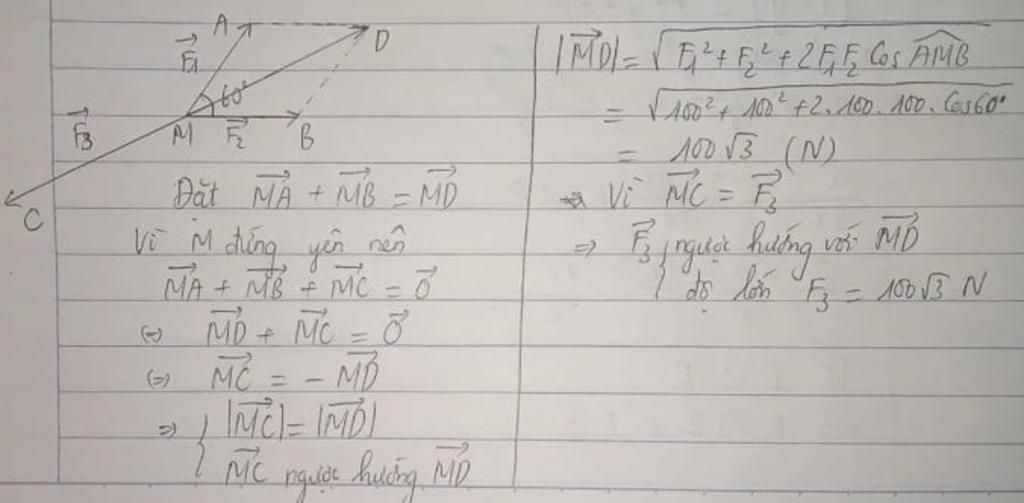 A D
F⃗₁
60°
F⃗₃ M F⃗₂ B
C
Đặt M͞A⃗ + M͞B⃗ = M͞D⃗
Vì M đứng yên nên
M͞A⃗ + M͞B⃗ + M͞C⃗ = 0⃗
(=) M͞D⃗ + M͞C⃗ = 0⃗
(=) M͞C⃗ = - M͞D⃗
=> { |M͞C⃗| = |M͞D⃗|
M͞C⃗ ngược hướng M͞D⃗
|M͞D⃗| = √(F₁² + F₂² + 2F₁F₂ Cos AMB̂)
= √(100² + 100² + 2.100.100.Cos60°)
= 100√3 (N)
Vì M͞C⃗ = F⃗₃
=> F⃗₃ { ngược hướng với M͞D⃗
độ lớn F₃ = 100√3 N